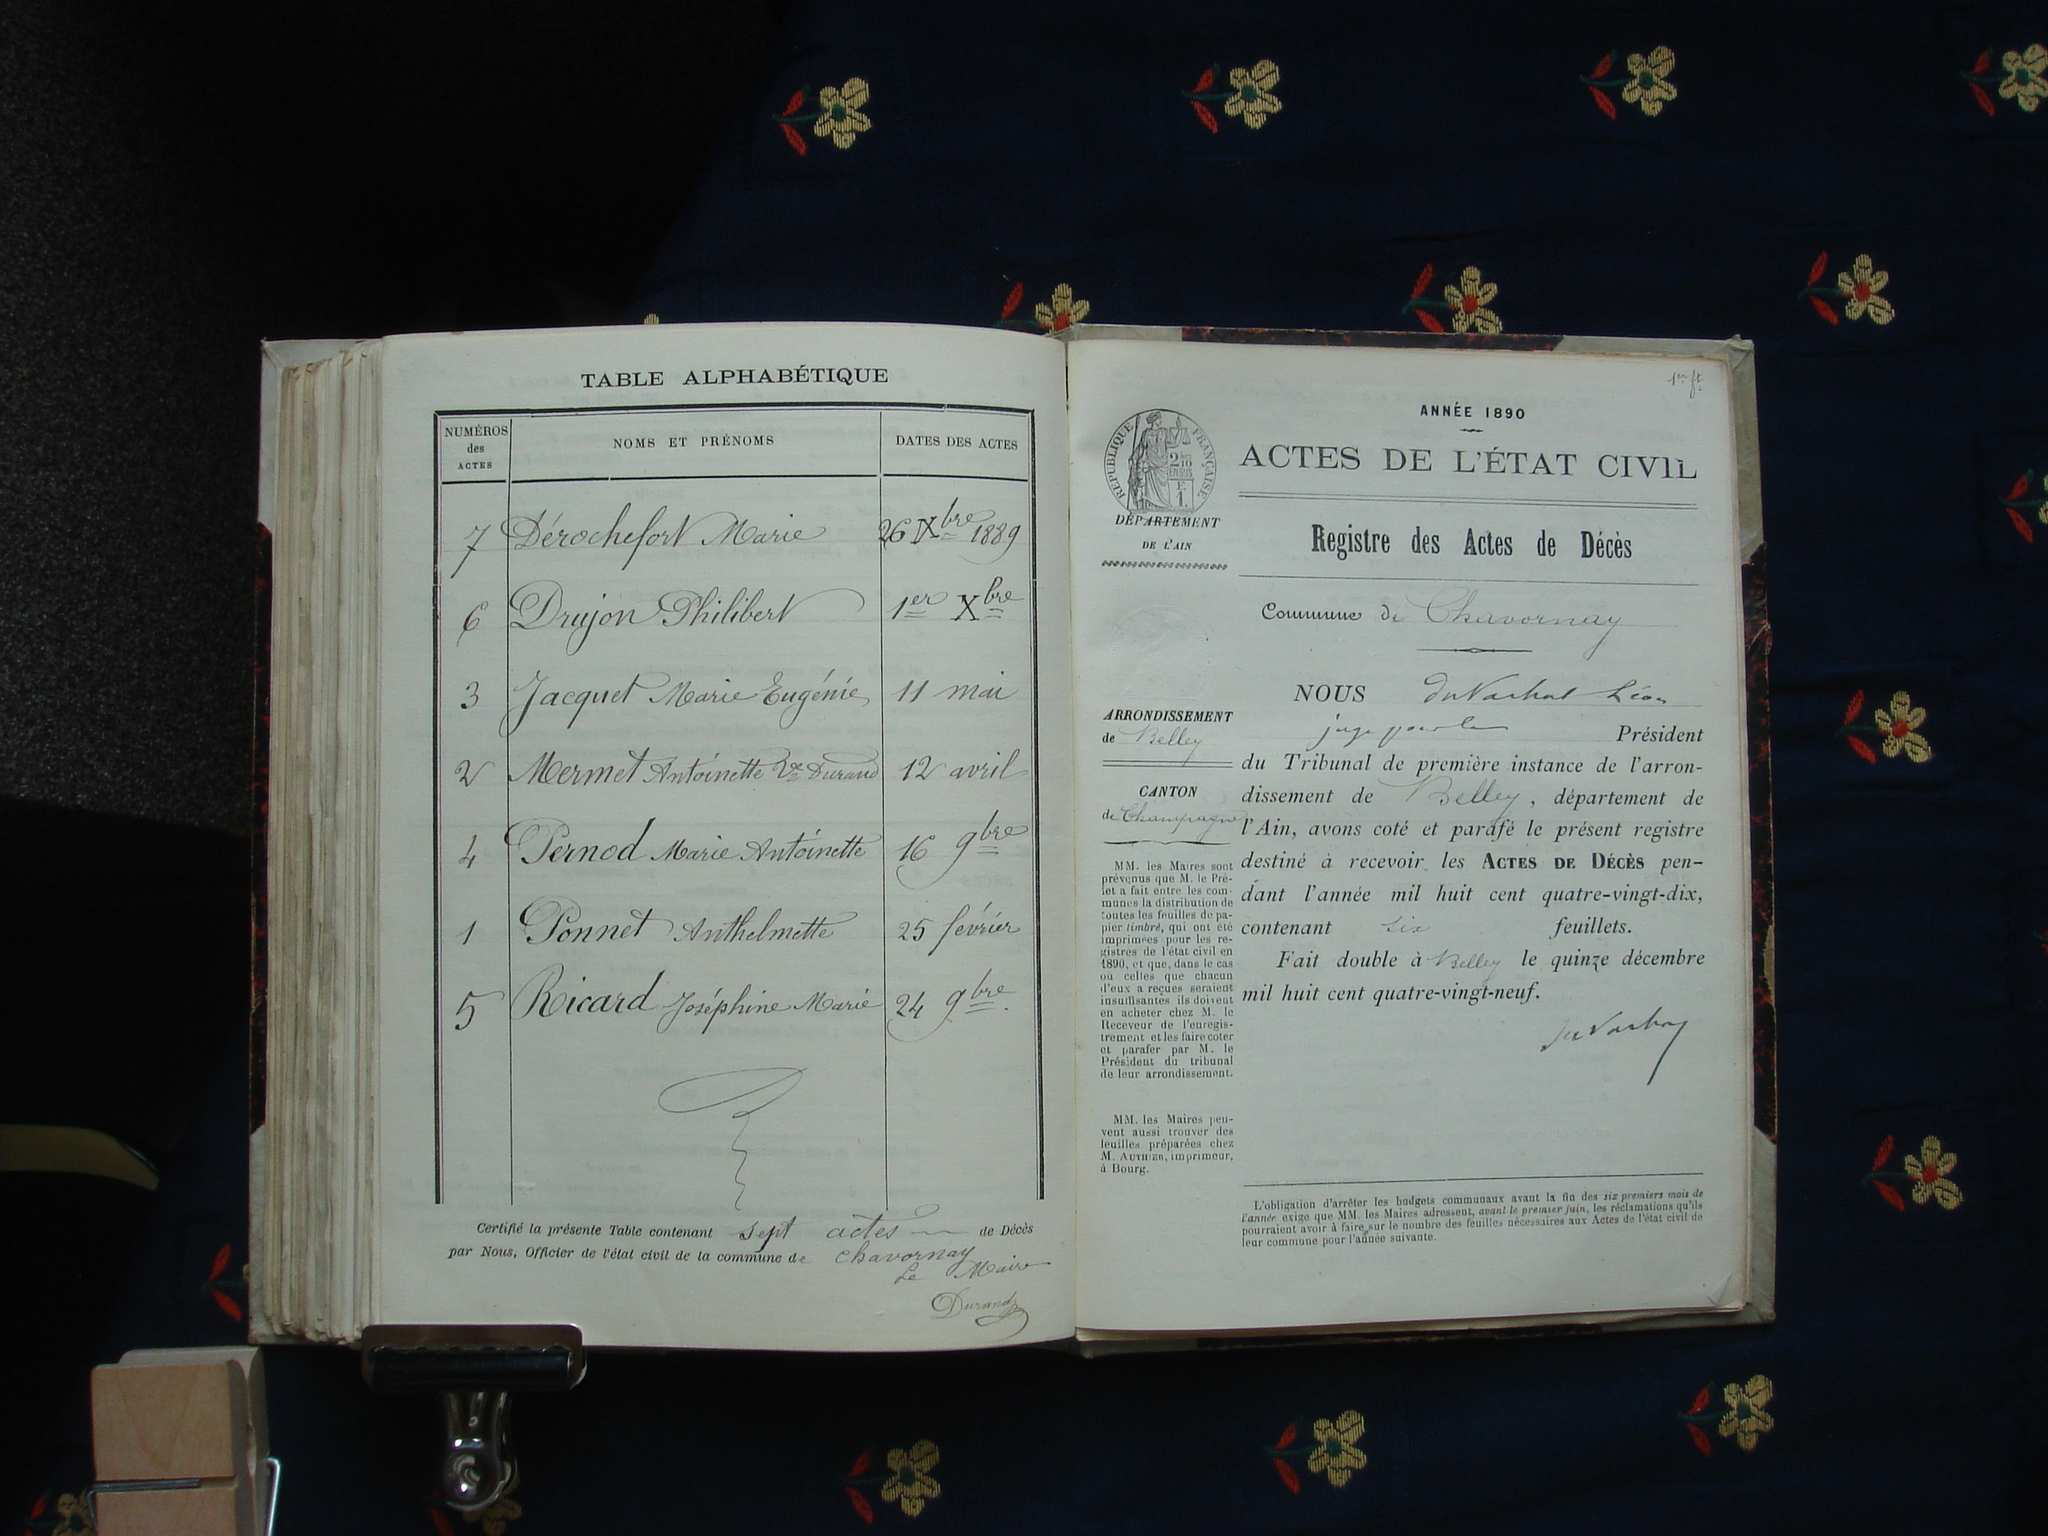 TABLE ALPHABÉTIQUE
NUMÉROS des ACTES
NOMS ET PRÉNOMS
DATES DES ACTES
7 Dérochefort Marie 26 Xbre 1889
6 Drujon Philibert 1er Xbre
3 Jacquet Marie Eugénie 11 mai
2 Mermet Antoinette Ve Durand 12 avril
4 Pernod Marie Antoinette 16 9bre
1 Ponnet Anthelmette 25 février
5 Ricard Joséphine Marie 24 9bre
Certifié la présente Table contenant sept actes de Décès
par Nous, Officier de l'état civil de la commune de Chavornay
Le Maire
Durand
1er ft
ANNÉE 1890
ACTES DE L'ÉTAT CIVIL
RÉPUBLIQUE FRANÇAISE
DÉPARTEMENT
DE L'AIN
Registre des Actes de Décès
Commune de Chavornay
ARRONDISSEMENT
de Belley
CANTON
de Champagne
MM. les Maires sont
prévenus que M. le Pré-
fet a fait entre les com-
munes la distribution de
toutes les feuilles de pa-
pier timbré, qui ont été
imprimées pour les re-
gistres de l'état civil en
1890, et que, dans le cas
où celles que chacun
d'eux a reçues seraient
insuffisantes ils doivent
en acheter chez M. le
Receveur de l'enregis-
trement et les faire coter
et parafer par M. le
Président du tribunal
de leur arrondissement.
MM. les Maires peu-
vent aussi trouver des
feuilles préparées chez
M. AUTHIER, imprimeur,
à Bourg.
NOUS Léon
juge pour le Président
du Tribunal de première instance de l'arron-
dissement de Belley, département de
l'Ain, avons coté et parafé le présent registre
destiné à recevoir les ACTES DE DÉCÈS pen-
dant l'année mil huit cent quatre-vingt-dix,
contenant six feuillets.
Fait double à Belley le quinze décembre
mil huit cent quatre-vingt-neuf.
L'obligation d'arrêter les budgets communaux avant la fin des six premiers mois de
l'année exige que MM. les Maires adressent, avant le premier juin, les réclamations qu'ils
pourraient avoir à faire sur le nombre des feuilles nécessaires aux Actes de l'état civil de
leur commune pour l'année suivante.